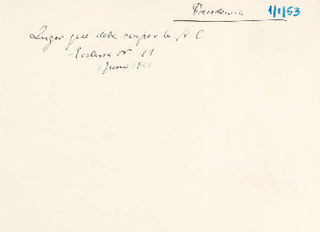 Precedencia 1/1/53
Lugar que debe ocupar la A C
Ecclesia nº 11
1 Junio 1941